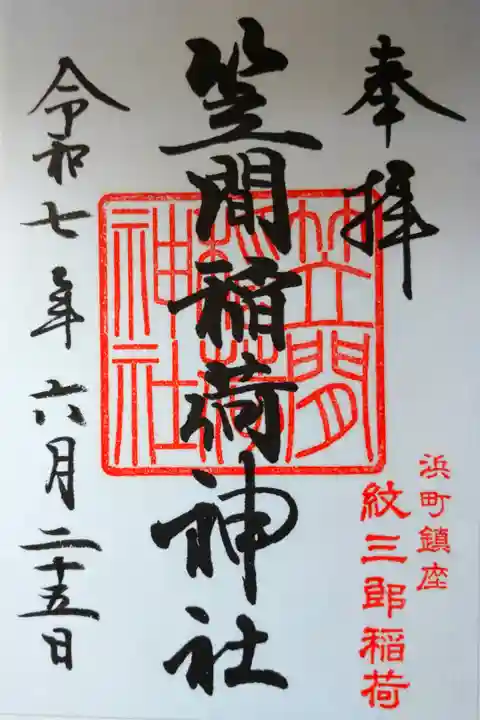 奉拝
浜町鎮座
紋三郎稲荷
笠間稲荷神社
笠間
稲荷
神社
令和七年六月二十五日